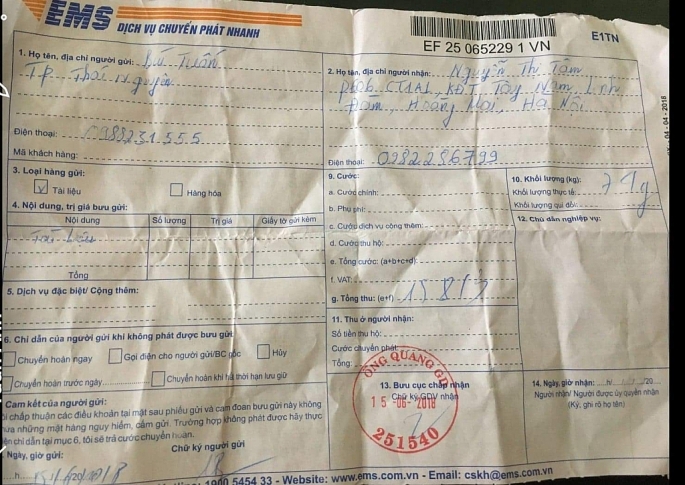 EMS DỊCH VỤ CHUYỂN PHÁT NHANH
EF 25 065229 1 VN
E1TN
1. Họ tên, địa chỉ người gửi: Tuấn
TP Thái Nguyên
Điện thoại: 0988231555
Mã khách hàng:
2. Họ tên, địa chỉ người nhận: Nguyễn Thị Tâm
KĐT Tây Nam Linh
Đàm, Hoàng Mai, Hà Nội
Điện thoại: 0982286799
04 - 04 - 2018
3. Loại hàng gửi:
Tài liệu
Hàng hóa
4. Nội dung, trị giá bưu gửi:
Nội dung Số lượng Trị giá Giấy tờ gửi kèm
Tài liệu
Tổng
5. Dịch vụ đặc biệt/ Cộng thêm:
6. Chỉ dẫn của người gửi khi không phát được bưu gửi
Chuyển hoàn ngay
Gọi điện cho người gửi/BC gốc
Hủy
Chuyển hoàn trước ngày
Chuyển hoàn khi hết thời hạn lưu giữ
Cam kết của người gửi:
chấp thuận các điều khoản tại mặt sau phiếu gửi và cam đoan bưu gửi này không
những mặt hàng nguy hiểm, cấm gửi. Trường hợp không phát được hãy thực
chỉ dẫn tại mục 6, tôi sẽ trả cước chuyển hoàn.
Ngày, giờ gửi:
Chữ ký người gửi
9. Cước:
a. Cước chính:
b. Phụ phí:
c. Cước dịch vụ cộng thêm:
d. Cước thu hộ:
e. Tổng cước: (a+b+c+d):
f. VAT:
g. Tổng thu: (e+f)
10. Khối lượng (kg):
Khối lượng thực tế:
Khối lượng qui đổi:
11. Thu ở người nhận:
Số tiền thu hộ:
Cước chuyển phát:
Tổng:
12. Chú dẫn nghiệp vụ:
13. Bưu cục chấp nhận
Chữ ký GDV nhận
QUANG
15 -06- 2018
251540
14. Ngày, giờ nhận: h 20
Người nhận/ Người được ủy quyền nhận
(Ký, ghi rõ họ tên)
1900 5454 33 - Website: www.ems.com.vn - Email: cskh@ems.com.vn